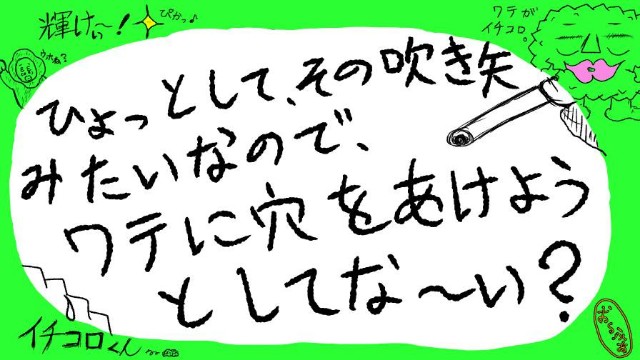 輝けぃ~!
ぴかっ♪
ワテが
イチコロ。
ウホね?
ひょっとして、その吹き矢
みたいなので、
ワテに穴をあけよう
としてな～い?
イチコロくん